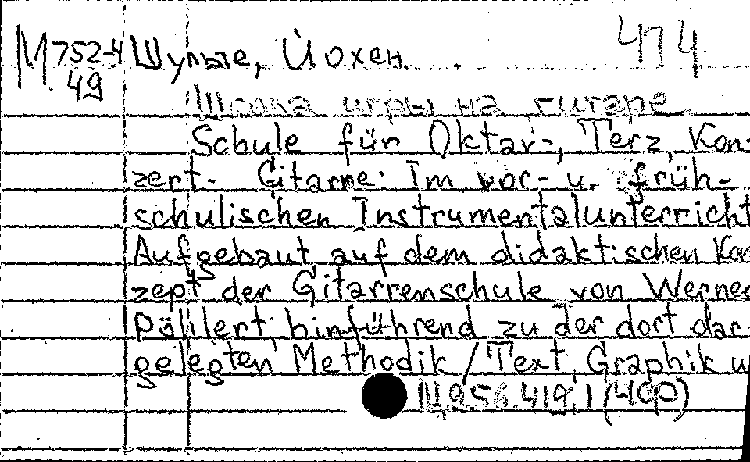 М 752-4 Шульте, Йохен. 474
49
Школа игры на гитаре
Schule für Oktav-, Terz, Kon-
zert- Gitarre: Im vor- u. früh-
schulischen Instrumentalunterricht
Aufgebaut auf dem didaktischen Kon
zept der Gitarrenschule von Werner
Pöhlert, hinführend zu der dort dar-
gelegten Methodik / Text, Graphik u
Щ956.419,1(4СР)